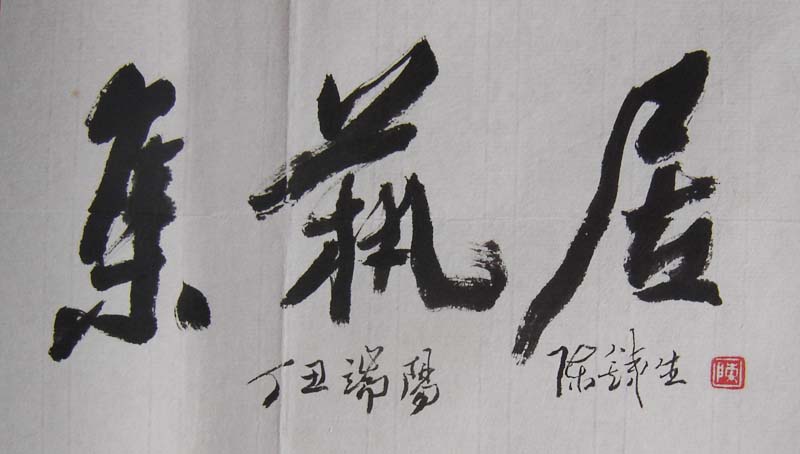 集藝居
丁丑端陽
陈鋳生
陳